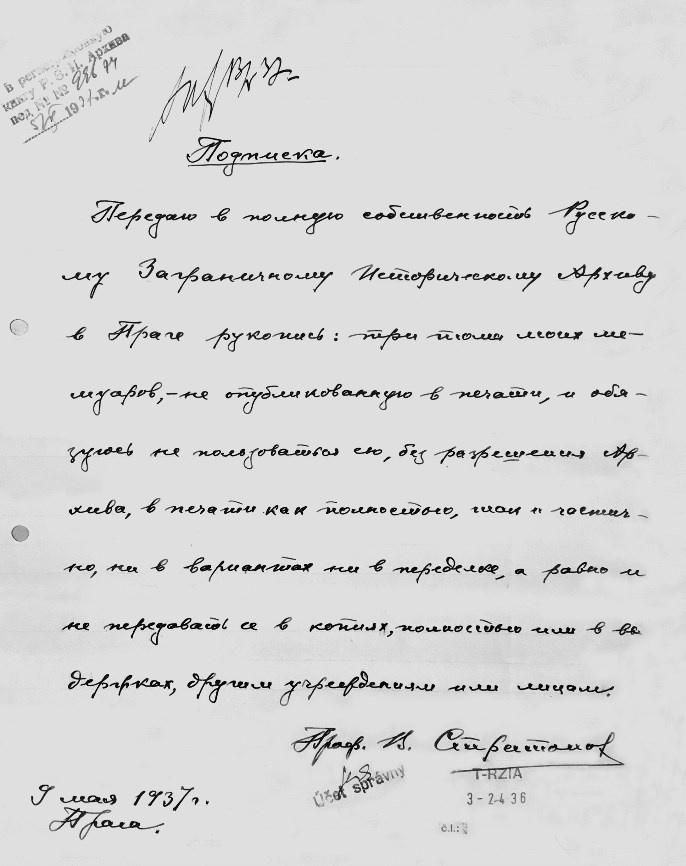 В регистрационную
книгу Р. З. И. Архива
под № №
1937 г.
Подписка.
Передаю в полную собственность Русско-
му Заграничному Историческому Архиву
в Праге рукопись: три тома моих ме-
муаров,- не опубликованную в печати, и обя-
зуюсь не пользоваться ею, без разрешения Ар-
хива, в печати как полностью, так и частич-
но, ни в вариантах ни в переделке, а равно и
не передавать ее в копиях, полностью или в вы
держках, другим учреждениям или лицам.
Проф. В. Стратонов
Účet správny
T-RZIA
3-2-4 36
č.l.:
9 мая 1937 г.
Прага.